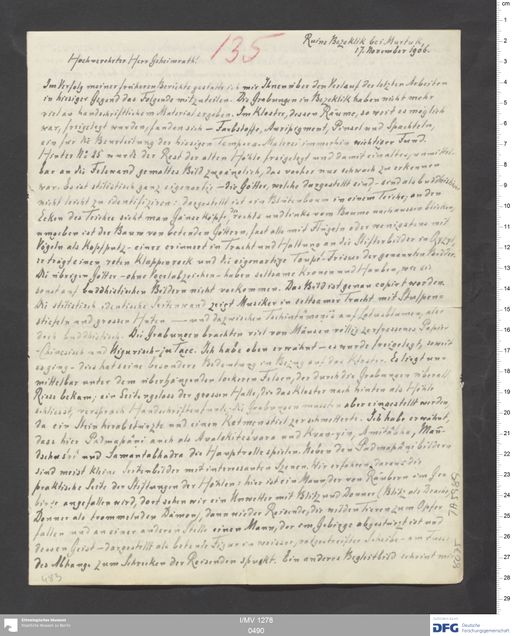 135
Ruine Bezeklik bei Murtuk,
17. November 1906.
Hochverehrter Herr Geheimrath!
Im Verfolg meiner früheren Berichte gestatte ich mir Ihnen über den Verlauf der letzten Arbeiten
in hiesiger Gegend das Folgende mitzuteilen. Die Grabungen in Bezeklik haben nicht mehr
viel an handschriftlichem Material ergeben. Im Kloster, dessen Räume, so weit es möglich
war, freigelegt wurden, fanden sich – Farbstoffe, Auripigment, Pinsel und Spachteln,
ein für die Beurteilung der hiesigen Tempera-Malerei immerhin wichtiger Fund.
Hinter No 25 wurde der Rest der alten Höhle freigelegt und damit ein altes, unmittel-
bar an die Felswand gemaltes Bild zugänglich, das vorher nur schwach zu erkennen
war. Es ist stilistisch ganz eigenartig – die Götter, welche dargestellt sind – sind als buddhistische
nicht leicht zu identifizieren: dargestellt ist ein Blütenbaum in einem Teiche, an den
Ecken des Teiches sieht man Köpfe, die rechts und links vom Baume nach aussen blicken,
umgeben ist der Baum von betenden Göttern, fast alle mit Flügeln oder wenigstens mit
Vögeln als Kopfputz – einer erinnert in Tracht und Haltung an die Stifterbilder in
er trägt einen roten Klapprock und die eigenartige Toupet-Frisur der genannten Periode.
Die übrigen Götter – ohne Vogelabzeichen – haben seltsame Kronen und Hauben, wie sie
sonst auf buddhistischen Bildern nicht vorkommen. Das Bild ist genau copiert worden.
Die stilistisch identische Seitenwand zeigt Musiker in seltsamer Tracht mit Stulpen-
stiefeln und grossen Hüten – und dazwischen auf Lotusblumen, also
doch buddhistisch. Die Grabungen brachten viel von Mäusen völlig zerfressenes Papier –
(chinesisch und Uigurisch) – zu Tage. Ich habe oben erwähnt – es wurde freigelegt, soweit
es ging – dies hat seine besondere Bedeutung in Bezug auf das Kloster. Es liegt un-
mittelbar unter dem überhängenden lockeren Felsen, der durch die Grabungen überall
Risse bekam; ein Seitengelass der grossen Halle, die das Kloster nach hinten als Höhle
schliesst, versprach Handschriftenfunde; die Grabungen mussten aber eingestellt werden,
da ein Stein herabstürzte und einen Ketmenstiel zerschmetterte. Ich habe erwähnt,
dass hier Padmapāni auch als Avalokiteśvara und Kvan-yin, Amitābha, Mañ-
dschuśri und Samantabhadra die Hauptrolle spielen. Neben den Padmapāni bildern
sind meist kleine Seitenbilder mit interessanten Szenen. Wir erfahren daraus die
praktische Seite der Stiftungen der Höhlen: hier ist ein Mann, der von Räubern im Ge-
birge angefallen wird, dort sehen wir ein Unwetter mit Blitz und Donner (Blitz als Drache,
Donner als trommelnder Dämon), dann wieder Reisende, die wilden tieren zum Opfer
fallen und an einer anderen Stelle einen Mann, der im Gebirge abgestürzt ist und
dessen Geist – dargestellt als betende Figur in weisser, Scheibe – am
des Abhangs zum Schrecken der Reisenden spukt. Ein anderes Begleitbild scheint mir
483
Ethnologisches Museum
Staatliche Museen zu Berlin
I/MV 1278
0490
DFG Deutsche
Forschungsgemeinschaft